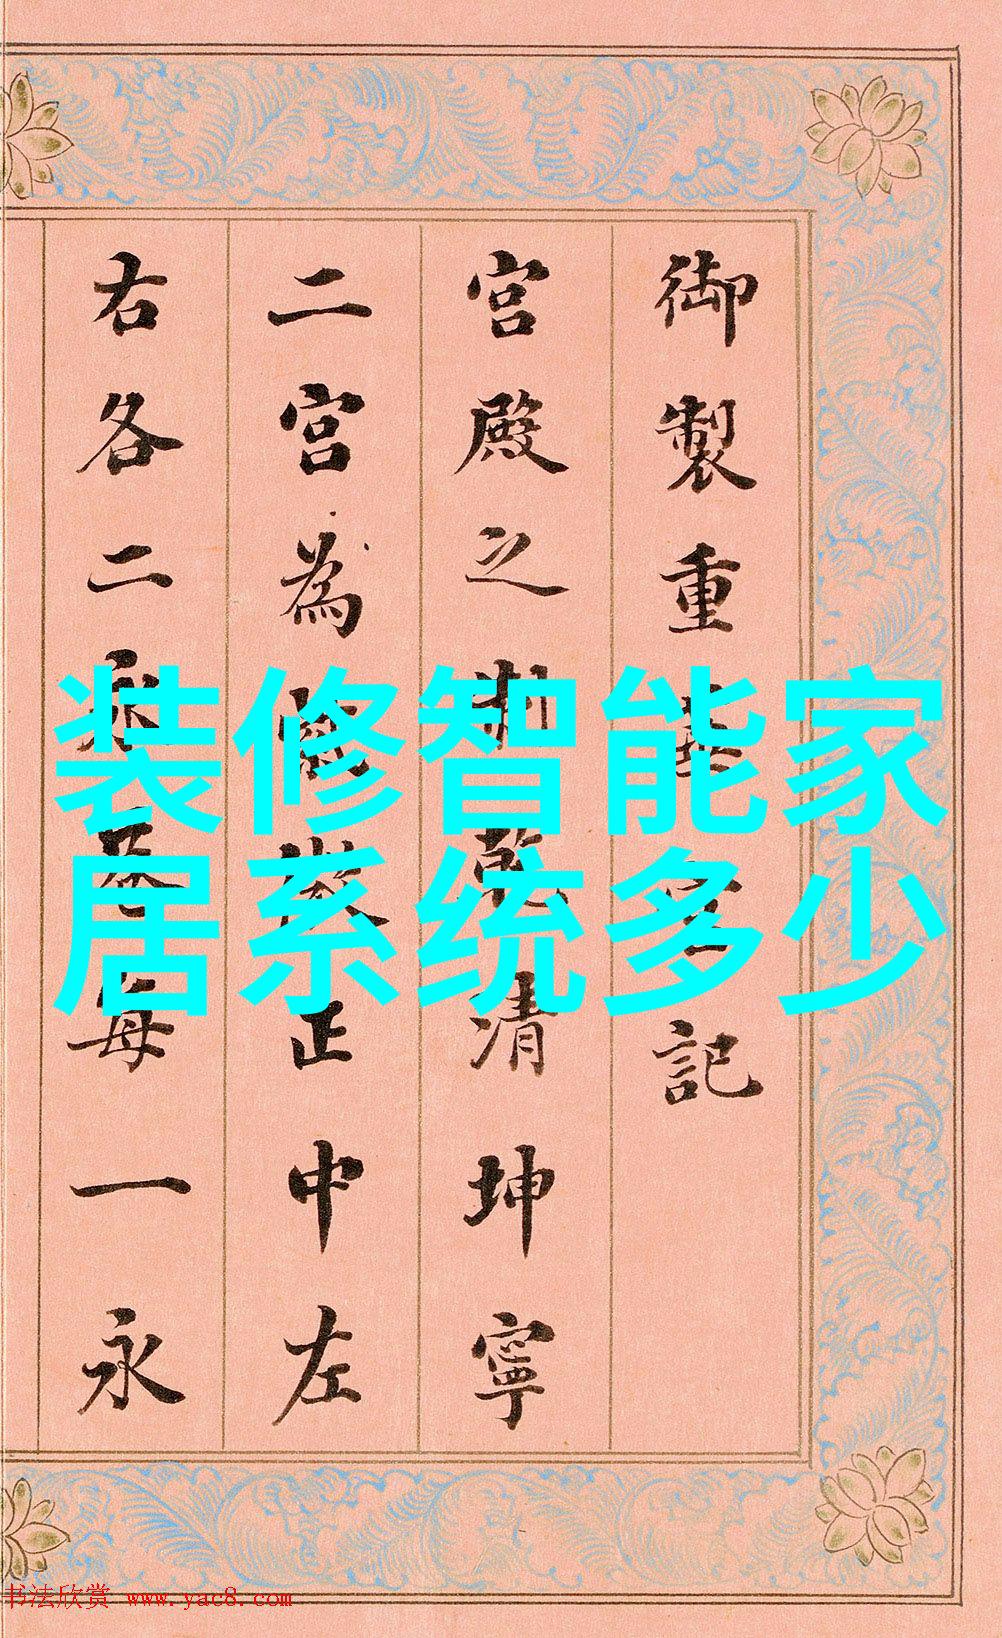 御製重華宮記
宮殿之制乾清坤寧
二宮為正中左
右各二永巷每一永
装修智能家
居系统多少
书法欣赏 www.yac8.com